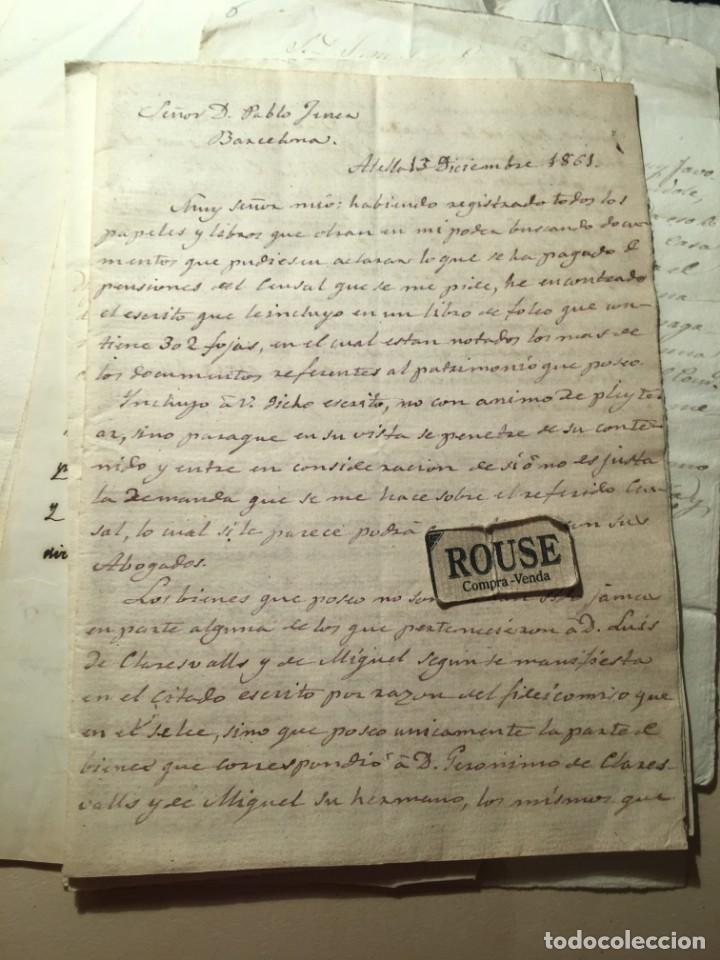 Señor D. Pablo
Barcelona.
Alella 13 Diciembre 1861.
Muy Señor mio: habiendo registrado todos los
papeles y libros que obran en mi poder buscando docu
mentos que pudiesen aclarar lo que se ha pagado de
pensiones del Censal que se me pide, he encontrado
el escrito que le incluyo en un libro de foleo que con-
tiene 302 fojas, en el cual estan notados los mas de
los documentos referentes al patrimonio que poseo.
Incluyo á V. dicho escrito, no con animo de pleyte
ar, sino paraque en su vista se penetre de su conte-
nido y entre en consideracion de si ó no es justa
la demanda que se me hace sobre el referido Cen
sal, lo cual si le parece podrá con sus
Abogados.
Los bienes que poseo no son jamas
en parte alguna de los que pertenecieron á D. Luis
de Claresvalls y de Miguel segun se manifiesta
en el citado escrito por razon del fideicomiso que
en el se lee, sino que poseo unicamente la parte de
bienes que correspondió á D. Geronimo de Clares-
valls y de Miguel su hermano, los mismos que
ROUSE
Compra-Venda
todocoleccion
todocoleccion.net